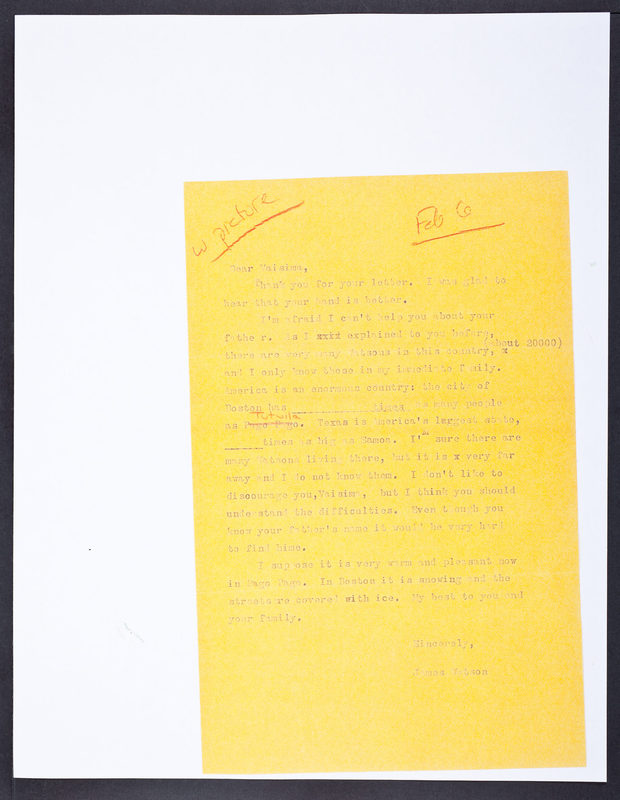 w picture
Feb 6
Dear Vaisima,
Thank you for your letter. I was glad to
hear that your hand is better.
I'm afraid I can't help you about your
father. As I xxxx explained to you before,
(about 20000)
there are very many Watsons in this country, x
and I only know those in my immediate family.
America is an enormous country: the city of
Boston has ____________ times as many people
Tutuila
as Pago Pago. Texas is America's largest state,
______times as big as Samoa. I'm sure there are
many Watsons living there, but it is x very far
away and I do not know them. I don't like to
discourage you,Vaisima, but I think you should
understand the difficulties. Even though you
know your father's name it would be very hard
to find hime.
I suppose it is very warm and pleasant now
in Pago Pago. In Boston it is snowing and the
streets are covered with ice. My best to you and
your family.
Sincerely,
James Watson